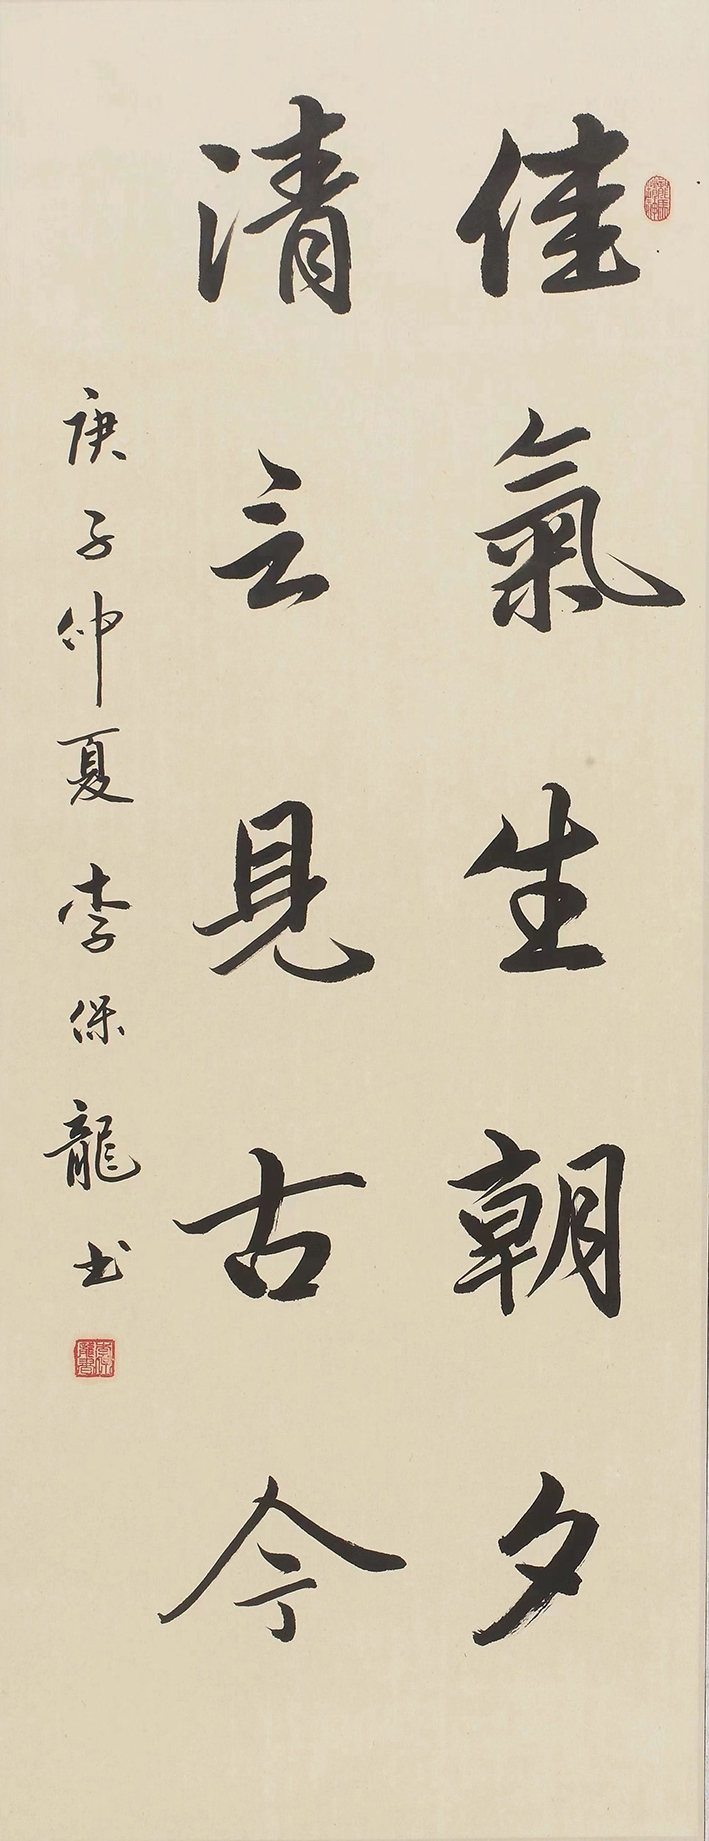 佳氣生朝夕
清言見古今
庚子仲夏李保龍书
李保龍書